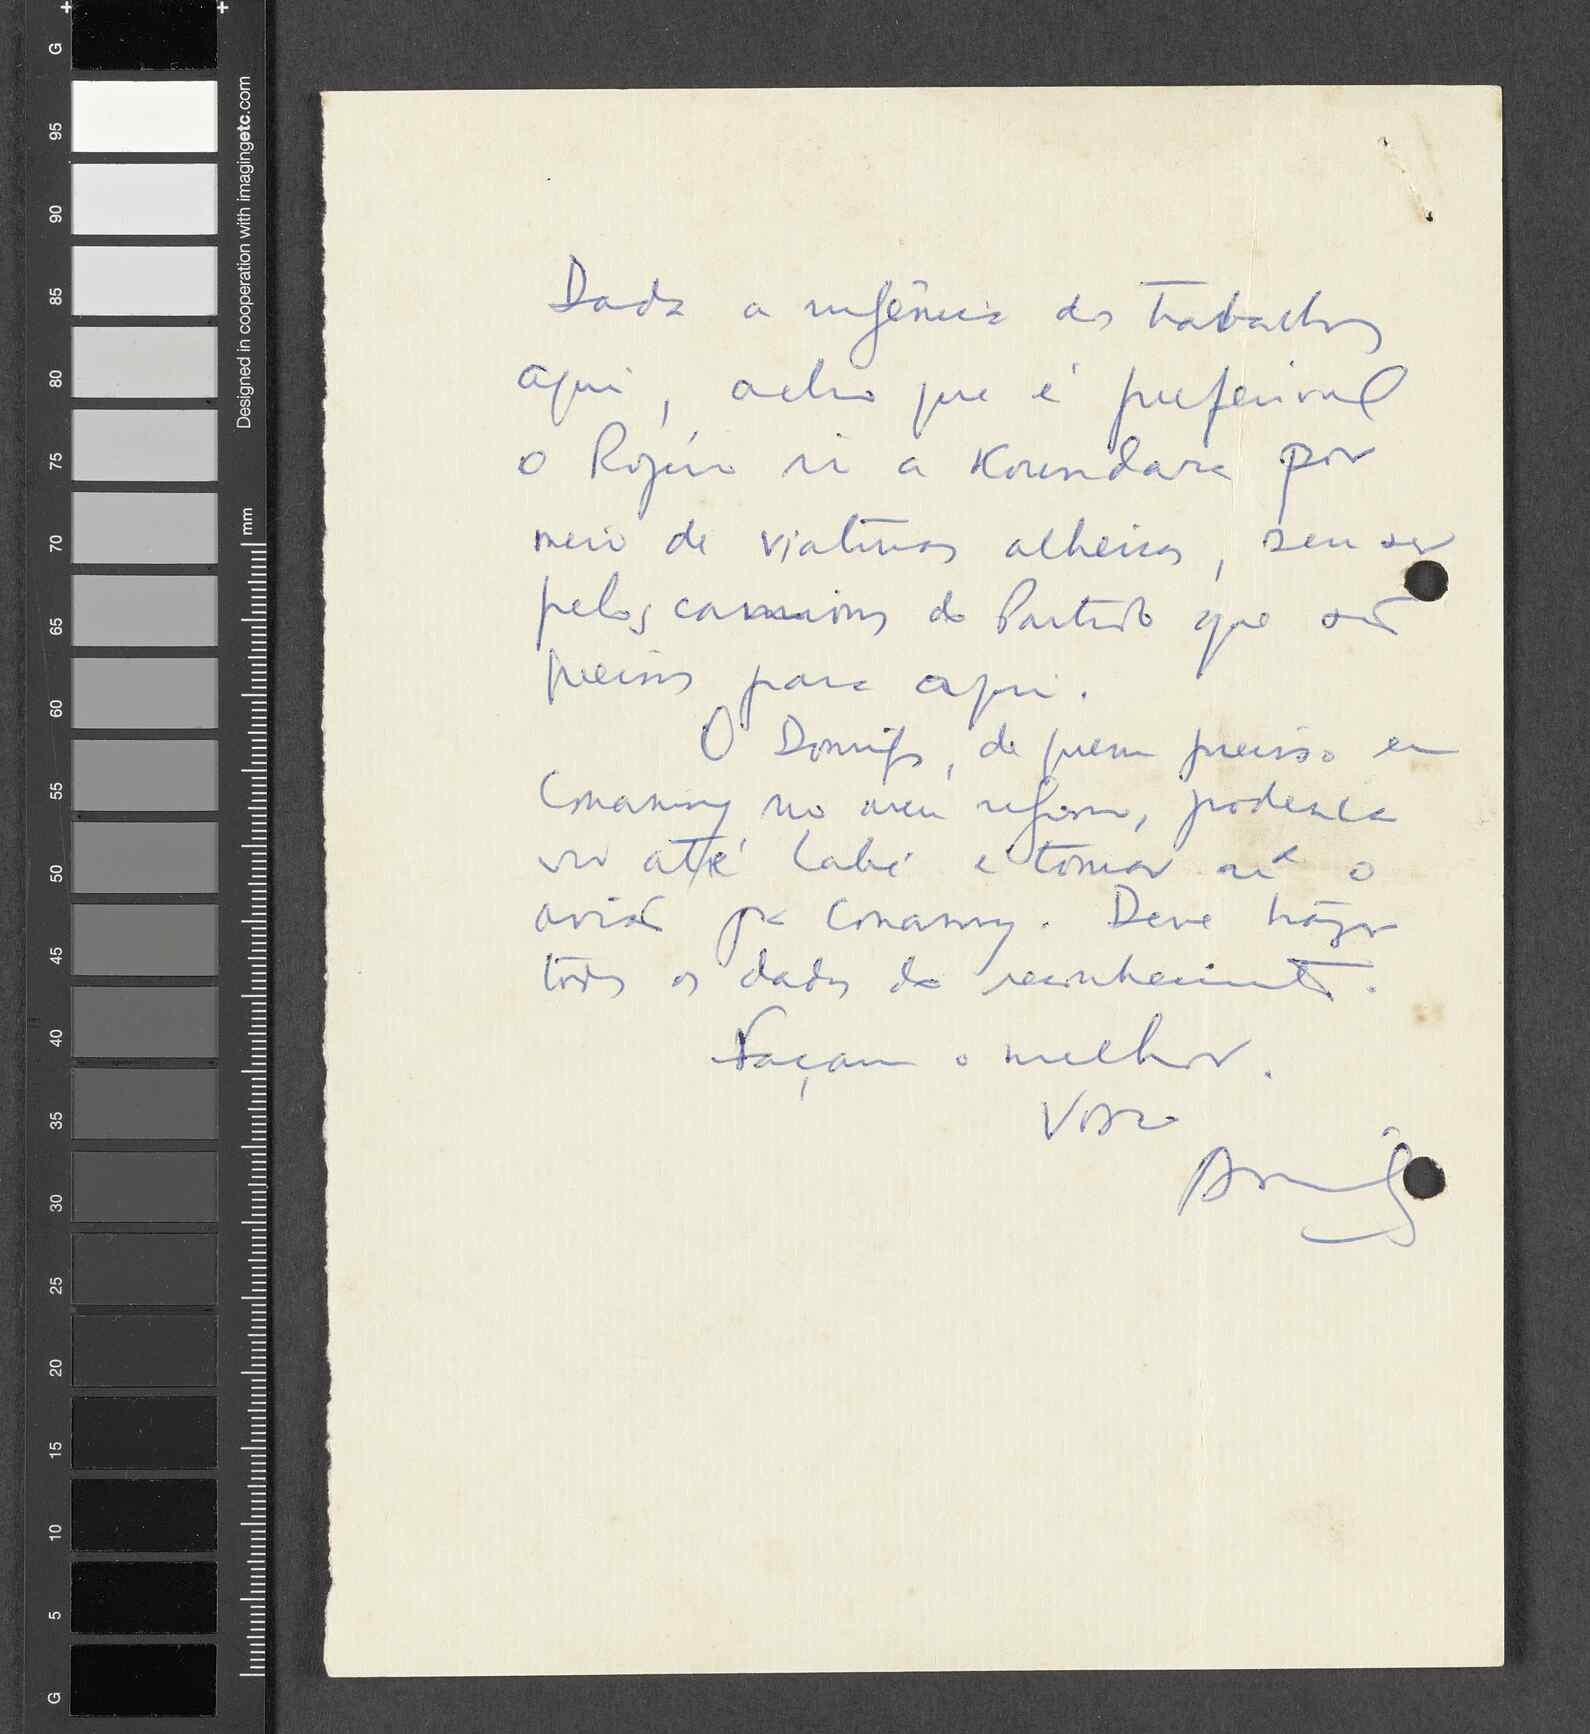 G
95
90
85
80
75
70
65
60
55
50
45
40
35
30
25
20
15
10
5
G
Designed in cooperation with imagingetc.com
mm
Dada a urgência dos trabalhos
aqui, acho que é preferivel
o Rogério ir a Koundara por
meio de viaturas alheias, sem ser
pelos camions do Partido que são
precisos para aqui.
O Domingos, de quem preciso em
Conakry no meu regresso, poderia
vir até Labé e tomar aí o
avião pa Conakry. Deve trazer
todos os dados do reconhecimento.
Façam o melhor.
Vosso